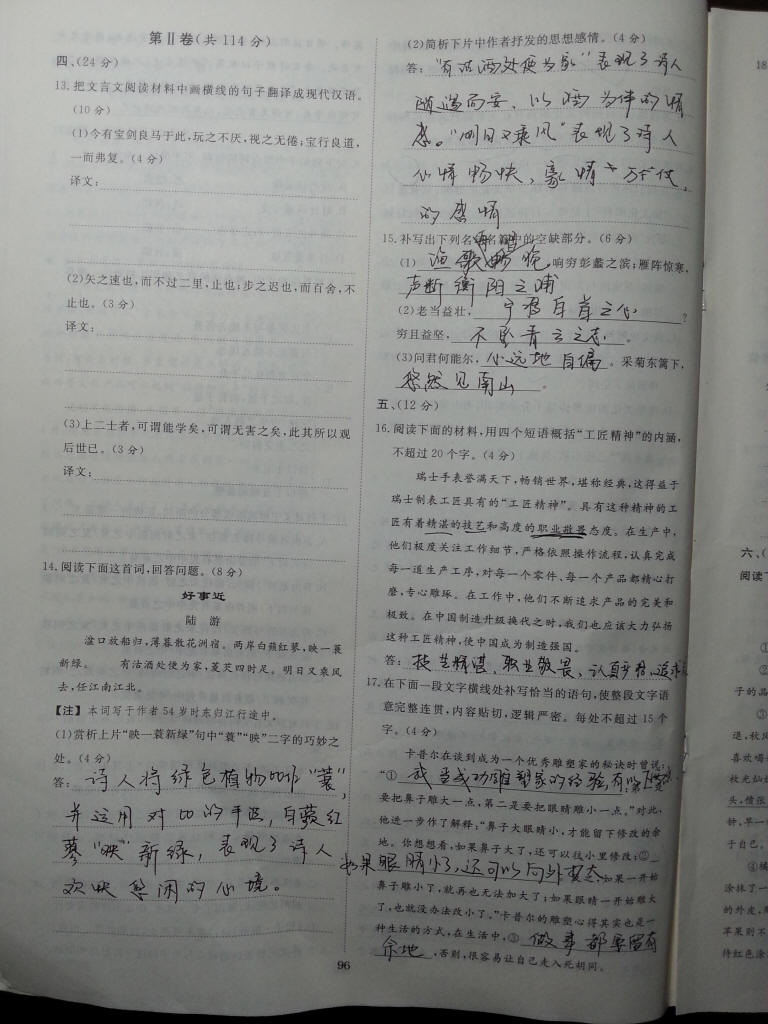 第Ⅱ卷(共114分)
四、(24分)
13.把文言文阅读材料中画横线的句子翻译成现代汉语。
(10分)
(1)今有宝剑良马于此,玩之不厌,视之无倦;宝行良道,
一而弗复。(4分)
译文:
(2)矢之速也,而不过二里,止也;步之迟也,而百舍,不
止也。(3分)
译文:
(3)上二士者,可谓能学矣,可谓无害之矣,此其所以观
后世已。(3分)
译文:
14.阅读下面这首词,回答问题。(8分)
好事近
陆 游
湓口放船归,薄暮散花洲宿。两岸白蘋红蓼,映一蓑
新绿。 有沽酒处便为家,菱芡四时足。明日又乘风
去,任江南江北。
【注】本词写于作者54岁时东归江行途中。
(1)赏析上片“映一蓑新绿”句中“蓑”“映”二字的巧妙之
处。(4分)
答:诗人将绿色植物比作“蓑”,
并运用对比的手法,白蘋红
蓼“映”新绿,表现了诗人
欢快悠闲的心境。
(2)简析下片中作者抒发的思想感情。(4分)
答:“有沽酒处便为家”表现了诗人
随遇而安、以酒为伴的情
感。“明日又乘风”表现了诗人
心情畅快、豪情万丈
的感情
15.补写出下列名句名篇中的空缺部分。(6分)
(1)渔歌唱晚,响穷彭蠡之滨;雁阵惊寒,
声断衡阳之浦
(2)老当益壮,宁移白首之心?
穷且益坚,不坠青云之志。
(3)问君何能尔,心远地自偏。采菊东篱下,
悠然见南山。
五、(12分)
16.阅读下面的材料,用四个短语概括“工匠精神”的内涵,
不超过20个字。(4分)
瑞士手表誉满天下,畅销世界,堪称经典,这得益于
瑞士制表工匠具有的“工匠精神”。具有这种精神的工
匠有着精湛的技艺和高度的职业敬畏态度。在生产中,
他们极度关注工作细节,严格依照操作流程,认真完成
每一道生产工序,对每一个零件、每一个产品都精心打
磨,专心雕琢。在工作中,他们不断追求产品的完美和
极致。在中国制造升级换代之时,我们也应该大力弘扬
这种工匠精神,使中国成为制造强国。
答:技艺精湛、职业敬畏、认真、追求
17.在下面一段文字横线处补写恰当的语句,使整段文字语
意完整连贯,内容贴切,逻辑严密。每处不超过15个
字。(4分)
卡普尔在谈到成为一个优秀雕塑家的秘诀时曾说:
“①成功雕塑家的经验有
要把鼻子雕大一点,第二是要把眼睛雕小一点。”对此,
他进一步作了解释:“鼻子大眼睛小,才能留下修改的余
地。你想想看,如果鼻子大了,还可以往小里修改;②
如果眼睛小了,还可以向外。如果一开始
鼻子雕小了,就再也无法加大了;如果眼睛一开始雕大
了,也就没办法改小了。”卡普尔的雕塑心得其实也是一
种生活的方式,在生活中,③做事都要留有
余地,否则,很容易让自己走入死胡同。
96
18
六、(
阅读下